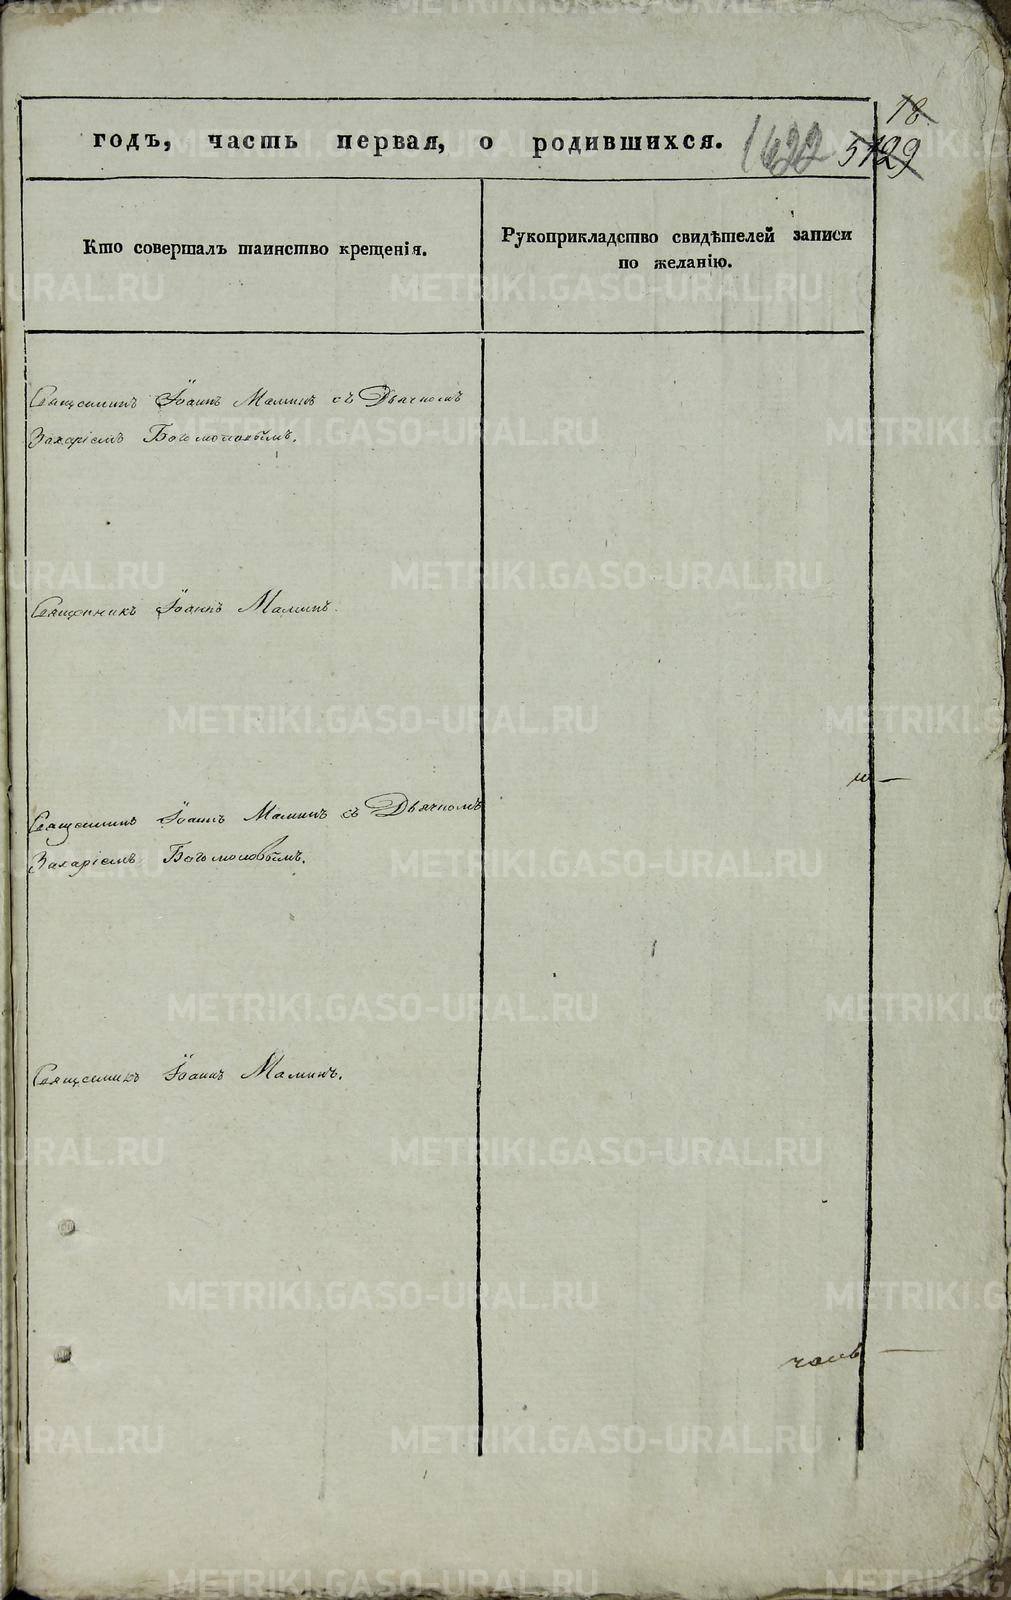 18
годъ, часть первая, о родившихся. 1622 5129
Кто совершалъ таинство крещенія.
Рукоприкладство свидѣтелей записи
по желанію.
Священникъ Іоаннъ Малинъ съ Дьячкомъ
Захаріемъ Богомоловымъ.
Священникъ Іоаннъ Малинъ.
Священникъ Іоаннъ Малинъ съ Дьячкомъ
Захаріемъ Богомоловымъ.
Священникъ Іоаннъ Малинъ.
METRIKI.GASO-URAL.RU